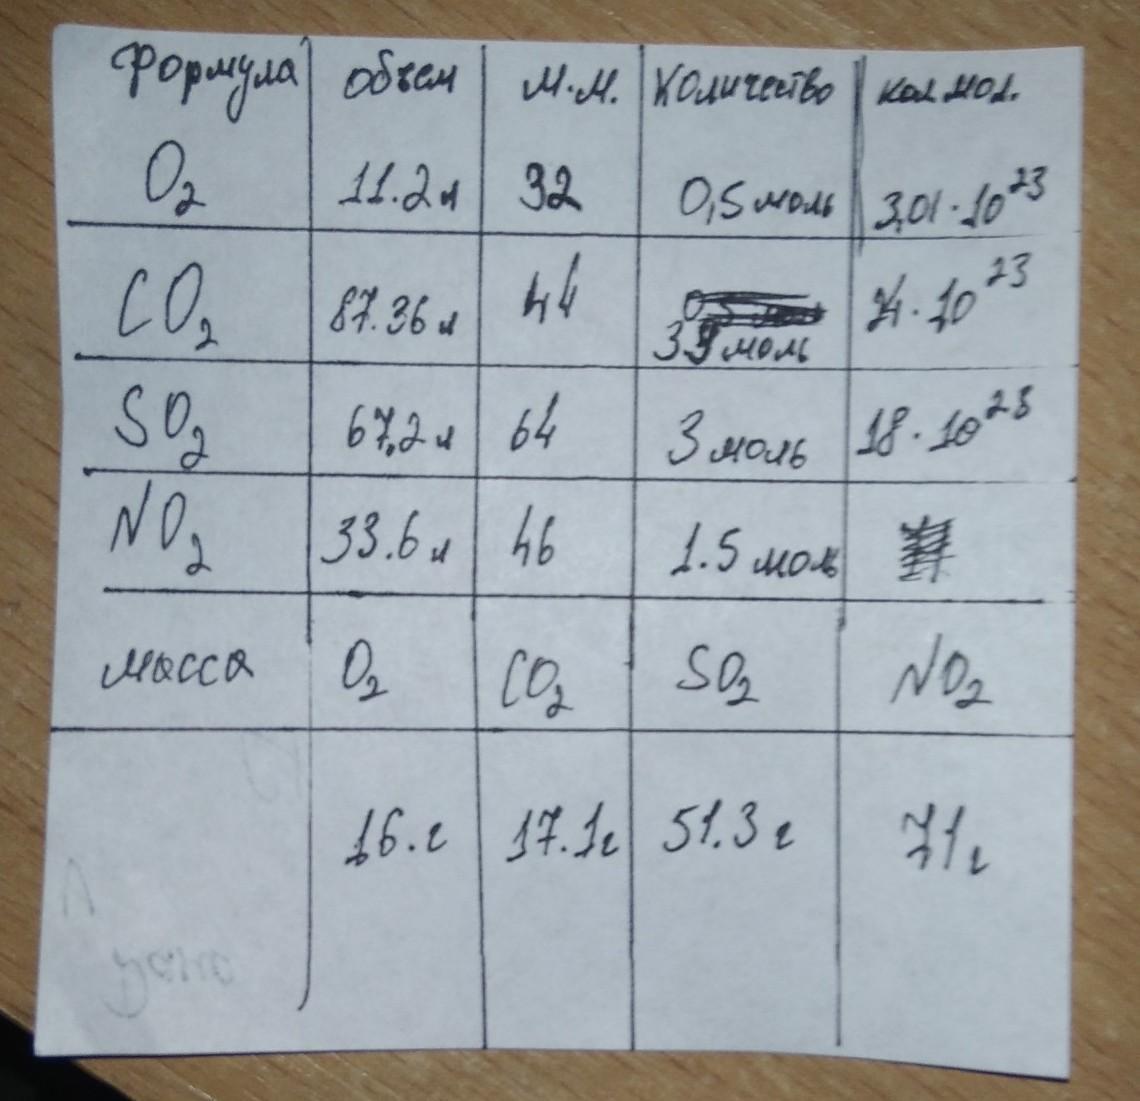 Формула объем М.М. Количество кол.мол.
O₂ 11.2л 32 0,5 моль 3,01·10²³
CO₂ 87.36 л 44
39 моль 24·10²³
SO₂ 67,2 л 64 3 моль 18·10²³
NO₂ 33.6 л 46 1.5 моль
масса O₂ CO₂ SO₂ NO₂
16.г 17.1г 51.3 г 71г